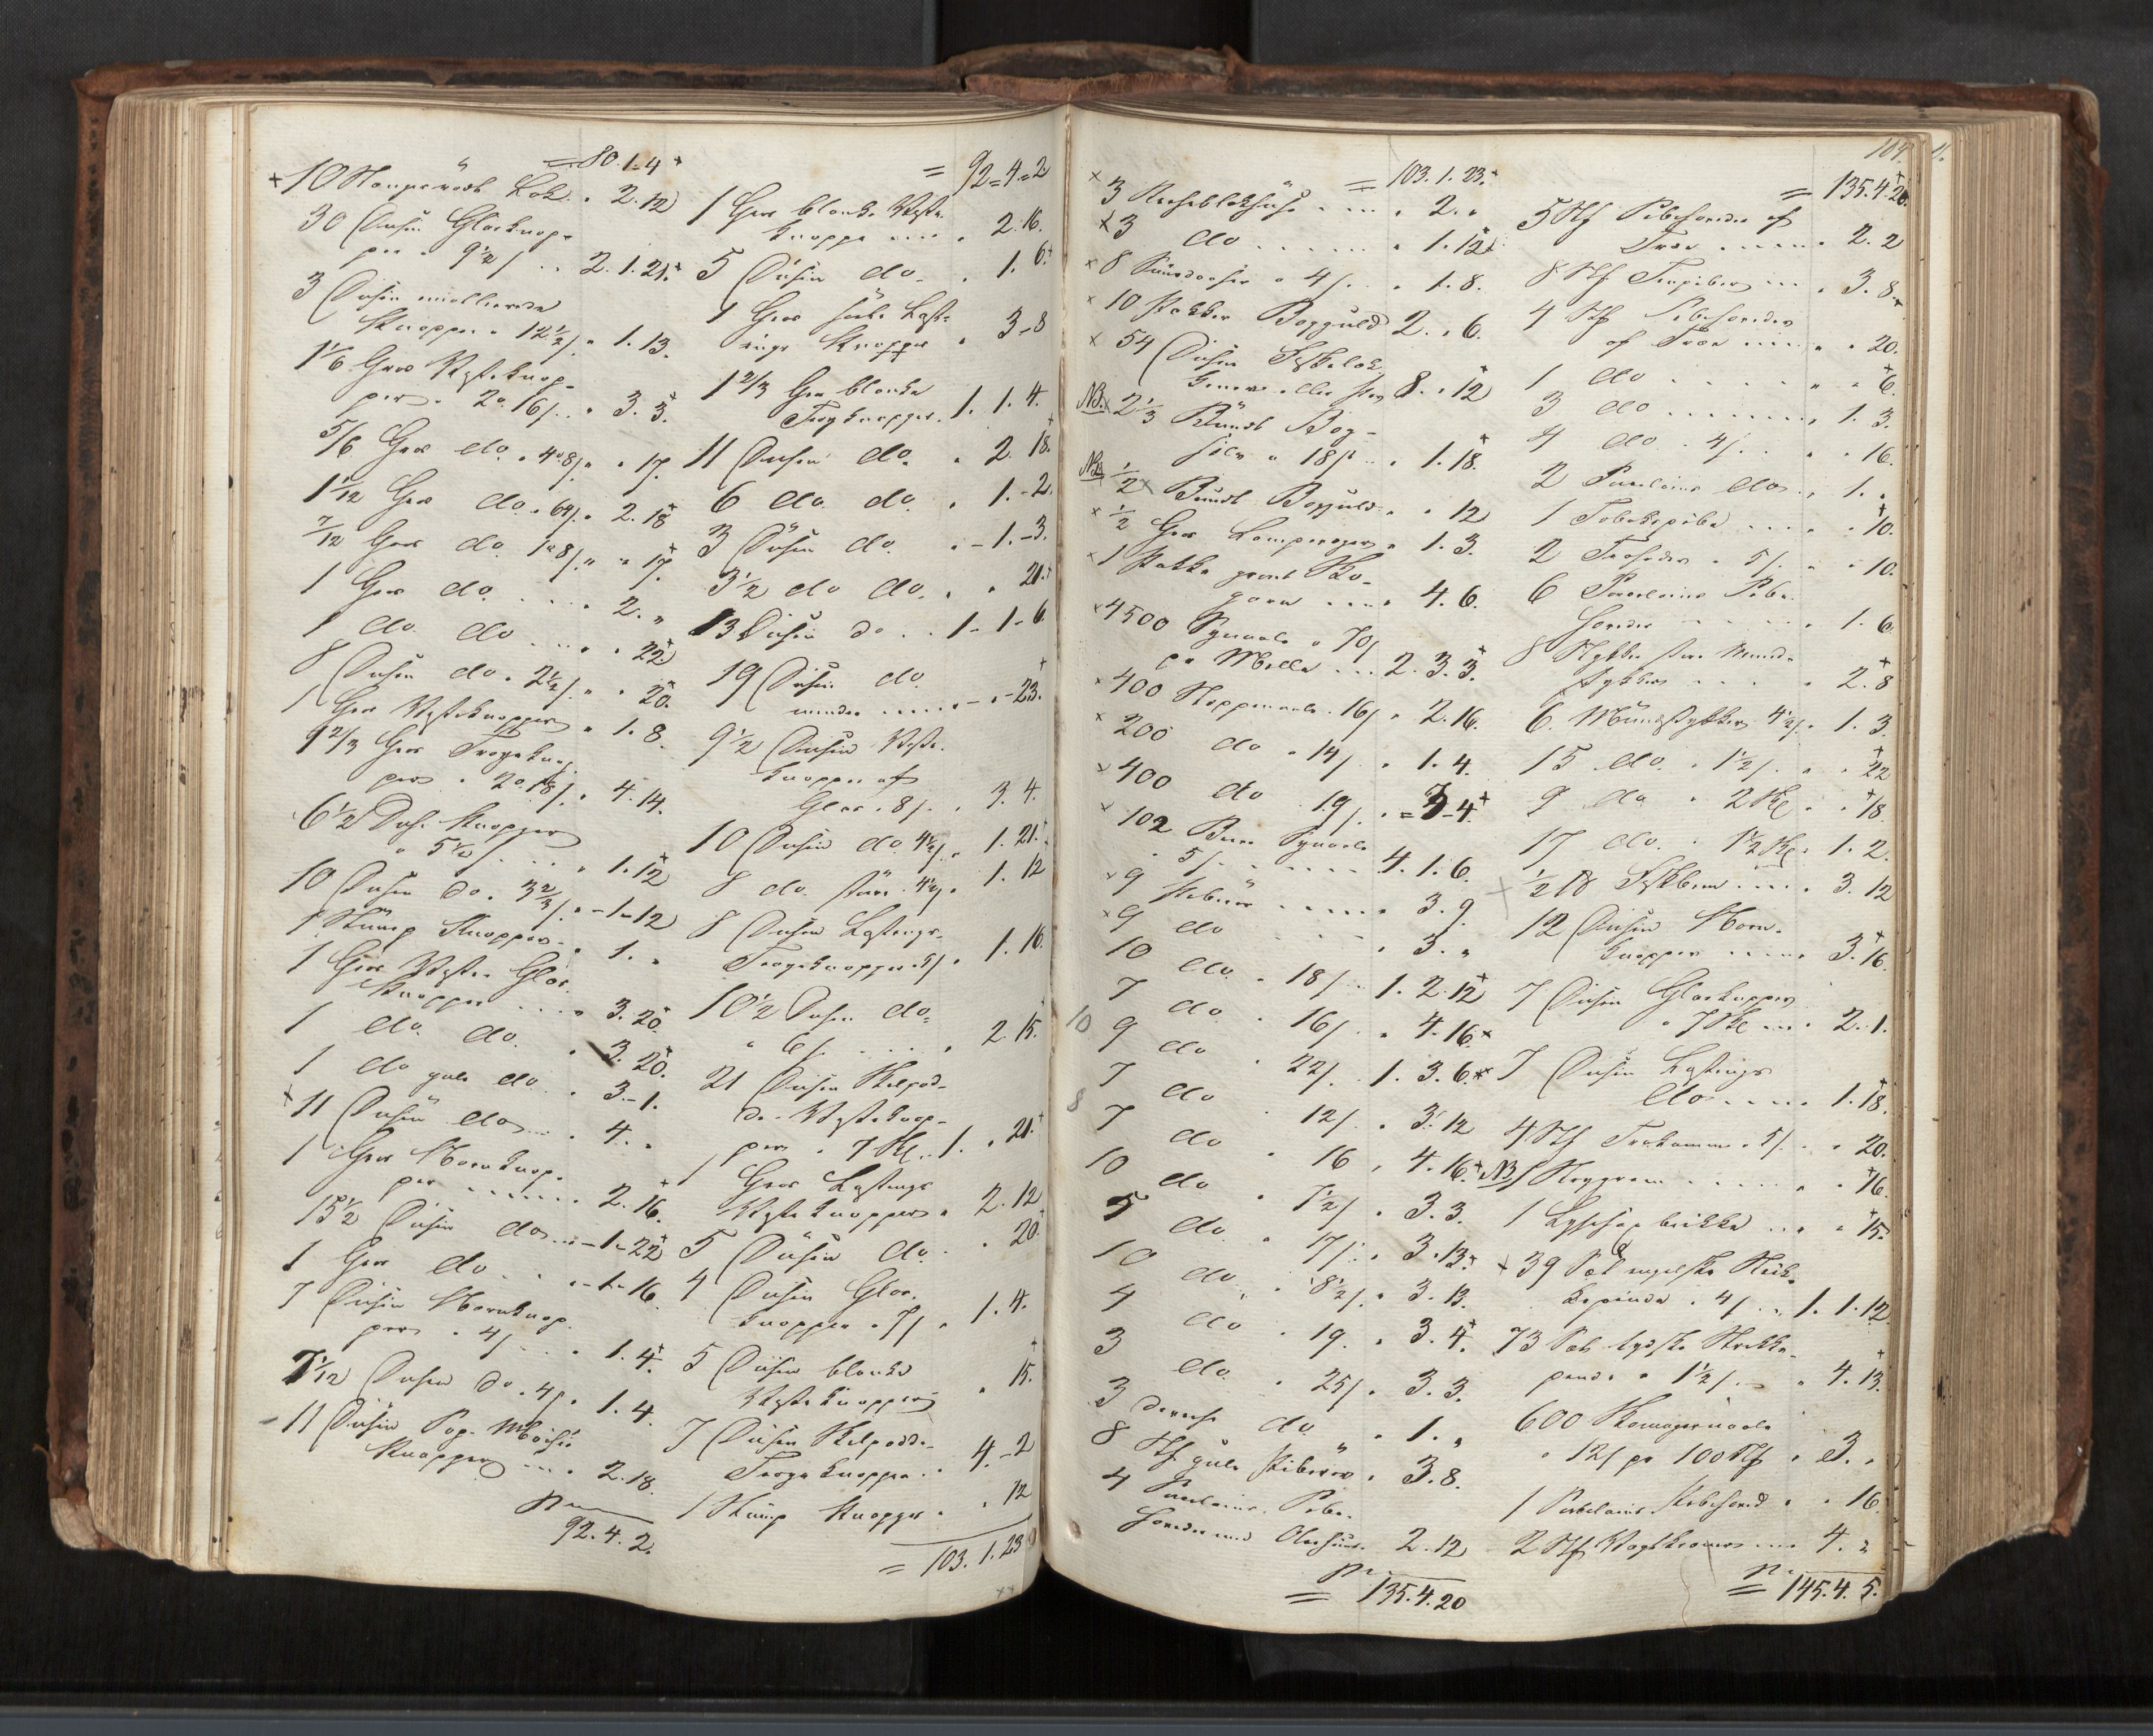 = 80.1.4
10 Stangevoch Lak . 2.12
30 Dusin Glasknap-
per . 9½ / . . 2.1.21.
3 Dusin
Knapper . 12½ / . 1.13.
1⅙ Gros Vesteknap-
per . 2.16 / . . 3.3.
5/6 Gros do. . 4.8 / . . 17.
1 1/12 Gros do. . 64 / . 2.18
7/12 Gros do. 1.8 / . " . 17.
1 Gros do. . . . 2. "
1 do. do. . . . 22
8 Dusin do . 2½ / . " . 20.
1 Gros Vesteknapper . 1.8.
1⅔ Gros Trøyeknap-
per . 2.18 / . 4.14.
6½ Dus. Knapper
. 5½ / . . . . 1.12
10 Dusin do . 3⅔ / . - 1 - 12
1 Stump Knapper . . 1. "
1 Gros Veste Glas-
knapper . . . . 3.20
1 do. do. . 3.20.
1 do gule do . 3. - 1.
11 Dusin do . . . 4. "
1 Gros Hornknap-
per . . . . . . 2.16.
13½ Dusin do . . . - 1 - 22
1 Gros do . . . - 1 - 16
7 Dusin Hornknap-
per . 4 / . . . 1.4.
7 1/12 Dusin do . 4 / . 1.4.
11 Dusin
Knapper . . . 2.18.
92.4.2.
= 92 = 4 = 2
1 Gros blanke Veste-
knapper . . . . 2.16.
5 Dusin do . . 1.6.
1 Gros Last-
ings Knapper . 3 - 8
1⅔ Gros blanke
Trøyknapper . 1.1.4.
11 Dusin do. . 2.18.
6 do. do. . 1. - 2.
3 Dusin do. . - 1. - 3.
3½ do do. . . 21.
13 Dusin do . . 1 - 1 - 6
19 Dusin do.
mindre . . . . - . - 23.
9½ Dusin Veste-
knapper af
Glas . 8 / . . 3.4.
10 Dusin do. 4½ / . 1.21.
8 do. større . 4½ / . 1.12
8 Dusin Lastings-
Trøyeknapper . 5 / . 1.16.
10½ Dusin do.
" 6 / . . . . . 2.15.
21 Dusin Skilpad-
de-Vesteknap-
per . 7 Sk. . 1. . 21.
1 Gros Lastings
Vesteknapper . 2.12
5 Dusin do. . . 20
4 Dusin Glas-
knapper . 7 / . 1.4.
5 Dusin blanke
Vesteknapper . 15.
7 Dusin Skilpadde-
Trøyeknapper . . 4. - 2
1 Stump Knapper . . 12
= 103.1.23
= 103.1.23.
3 . . . . 2. "
3 do . . . . . . 1.12.
8 . 4 / . . . 1.8.
10 Pakker Bogguld 2. . 6.
54 Dusin
8. . 12
NB. 2⅓ Bundt Bog-
sølv . 18 / . . . 1.18.
NB. ½ Bundt Bogguld . . 12
½ Gros Lampeveger . 1.3.
1 Pakke graat Sko-
garn . . . . 4.6.
4500 Synaale . 70 /
pr Mille . . . 2.3.3.
400 Stoppenaale . 16 / . 2.16.
200 do . 14 / . 1.4.
400 do 19 / . = 3 - 4.
102 Synaale
. 5 / . . . . . 4.1.6.
9 Piberør . . . . . 3.9.
9 do . . . . 3. "
10 do. . 18 / . . 1.2.12
7 do . 16 / . . 4.16.
10
9 do . 22 / . 1.3.6.
7 do . 12 / . . 3.12
8
7 do . 16 . 4.16.
10 do . 7½ / . 3.3.
5 do. . 17 / . . 3.13.
10 do. . 8½ / . . 3.13.
4 do . 19. . 3.4.
3 do . 25 / . 3.3.
3 do . 1. "
8 Stk gule Piberør . 3.8.
4 Porcelains Pibe-
hoveder med . 2.12
= 135.4.20
104.
= 135.4.20.
5 Stk Pibehoveder af
Træ . . . . . 2.2
8 Stk Træpiber . . . 3.8.
4 Stk Pibehoveder
af Træ . . . . . . 20.
1 do . . . . . " . 6.
3 do . . . . . . . 1.3.
4 do . 4 / . . . . 16.
2 Porcelains do . . 1. .
1 Tobakspibe . . . . . 10.
2 Træhoveder . 5 / . . . 10.
6 Porcelains Pibe-
hoveder . . . . . 1.6.
8 Stykker større Mund-
stykker . . . . . 2.8
6 Mundstykker 4½ / . 1.3.
15 do. . 1½ / . . . 22
9 do . 2 Sk . . 18.
17 do. . 1½ Sk . 1.2.
½ ℔ Fiskbeen . . . . 3.12
12 Dusin Horn-
knapper . . . . . 3.16.
7 Dusin Glasknapper
. 7 Sk . . . 2.1.
7 Dusin Lastings
do . . . . 1.18.
4 Stk Trækamme . 5 / . . . 20.
NB. 1 . . . . . . . 16.
1 . . . . 15.
39 Sæt engelske Strik-
kepinde . 4 / . . 1.1.12
73 Sæt tydske Strikke-
pinde . 1½ / . . . 4.13.
600 Skomagernaale
. 12 / pr 100 Stk . 3. .
1 Porcelains Pibehoved . . 16.
2 Stk . . . 4. "
= 145.4.5.